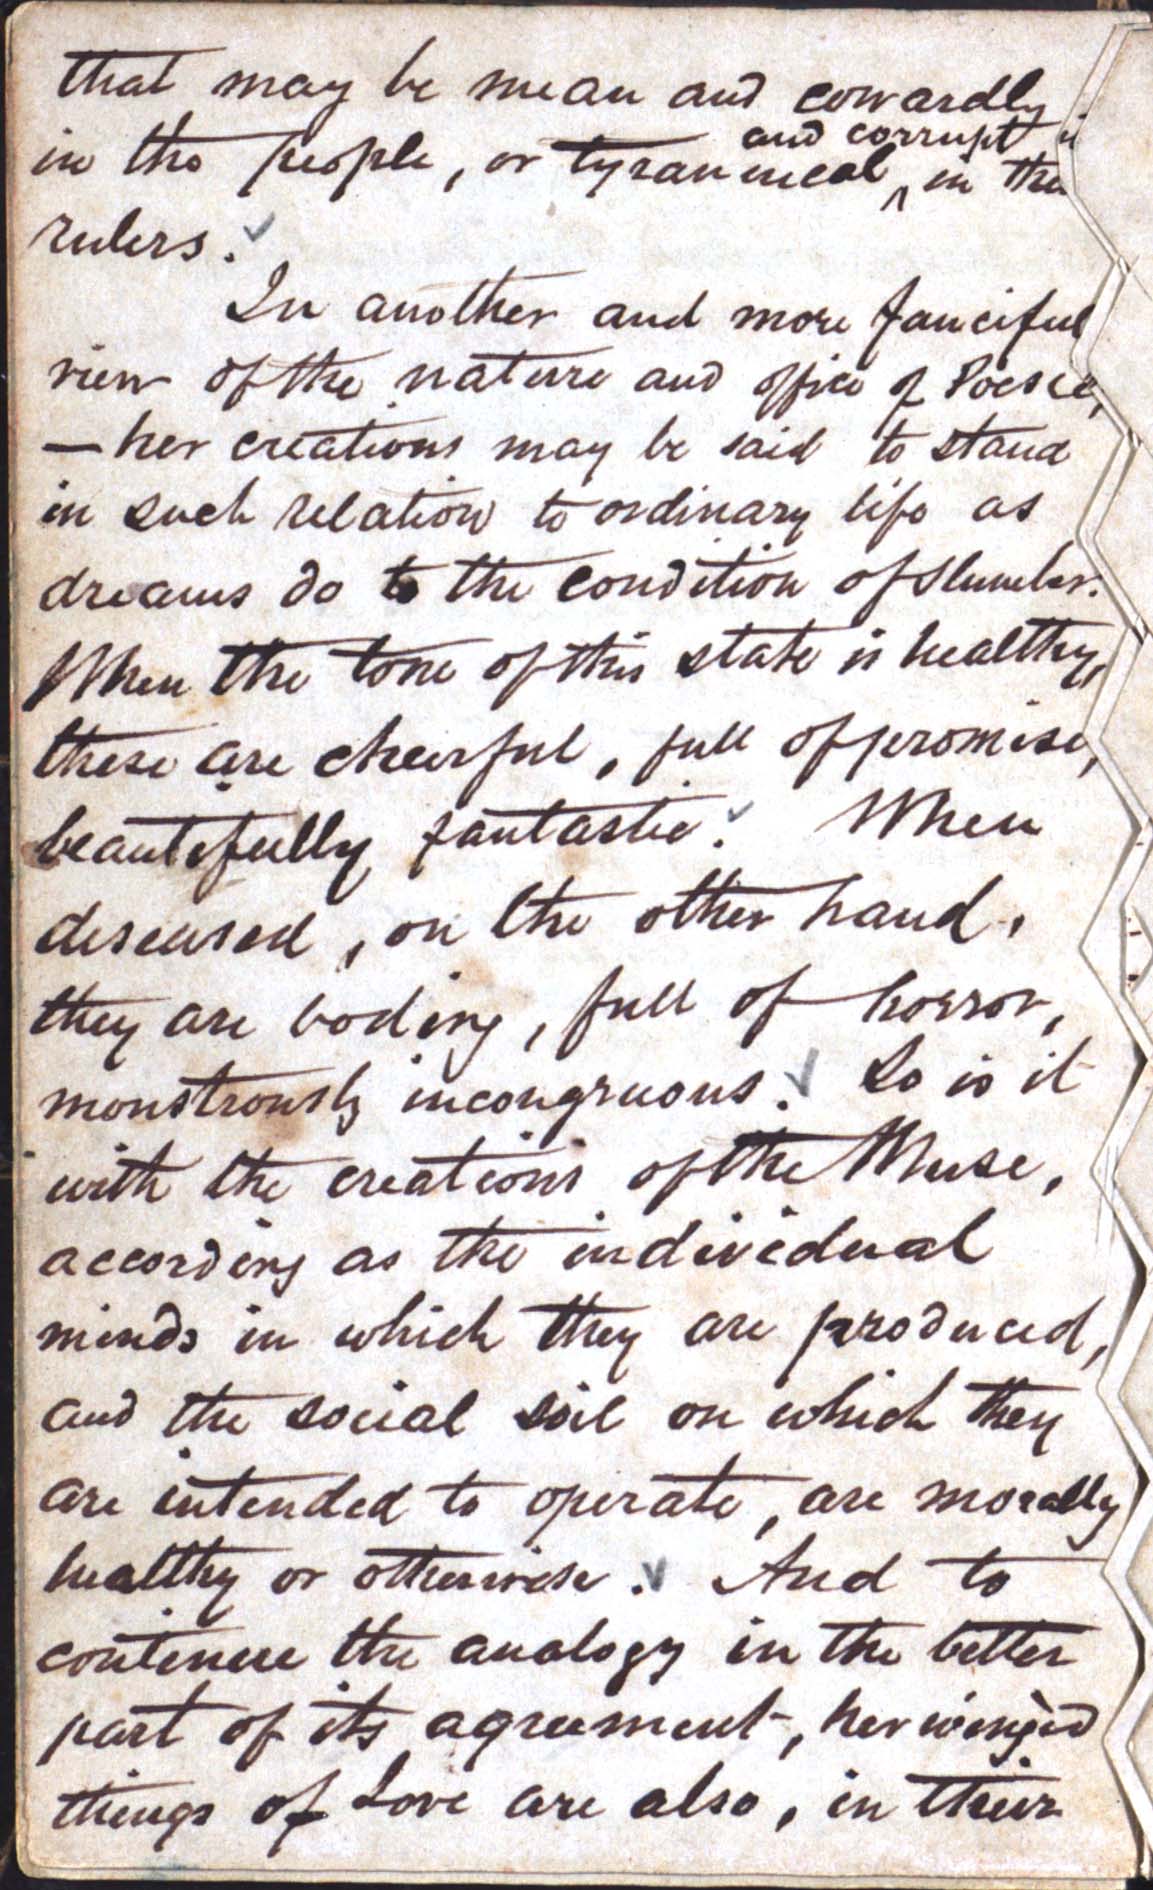 that may be mean and cowardly
and corrupt
in the people, or tyrannical ^ in the
rulers.
In another and more fanciful
view of the nature and office of Poesie,
— her creations may be said to stand
in such relation to ordinary life as
dreams do to the condition of slumber.
When the tone of this state is healthy,
these are cheerful, full of promise,
beautifully fantastic. When
diseased, on the other hand,
they are boding, full of horror,
monstrously incongruous. So is it
with the creations of the Muse,
according as the individual
minds in which they are produced,
and the social soil on which they
are intended to operate, are morally
healthy or otherwise. And to
continue the analogy in the better
part of its agreement, her wingèd
things of Love are also, in their